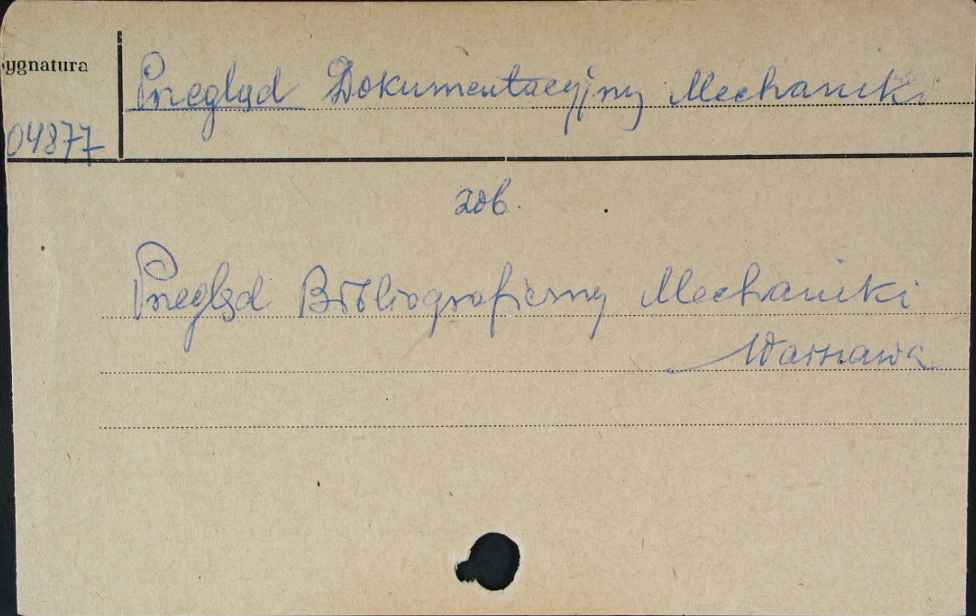 Sygnatura
Przegląd Dokumentacyjny Mechaniki
04877
zob.
Przegląd Bibliograficzny Mechaniki
Warszawa